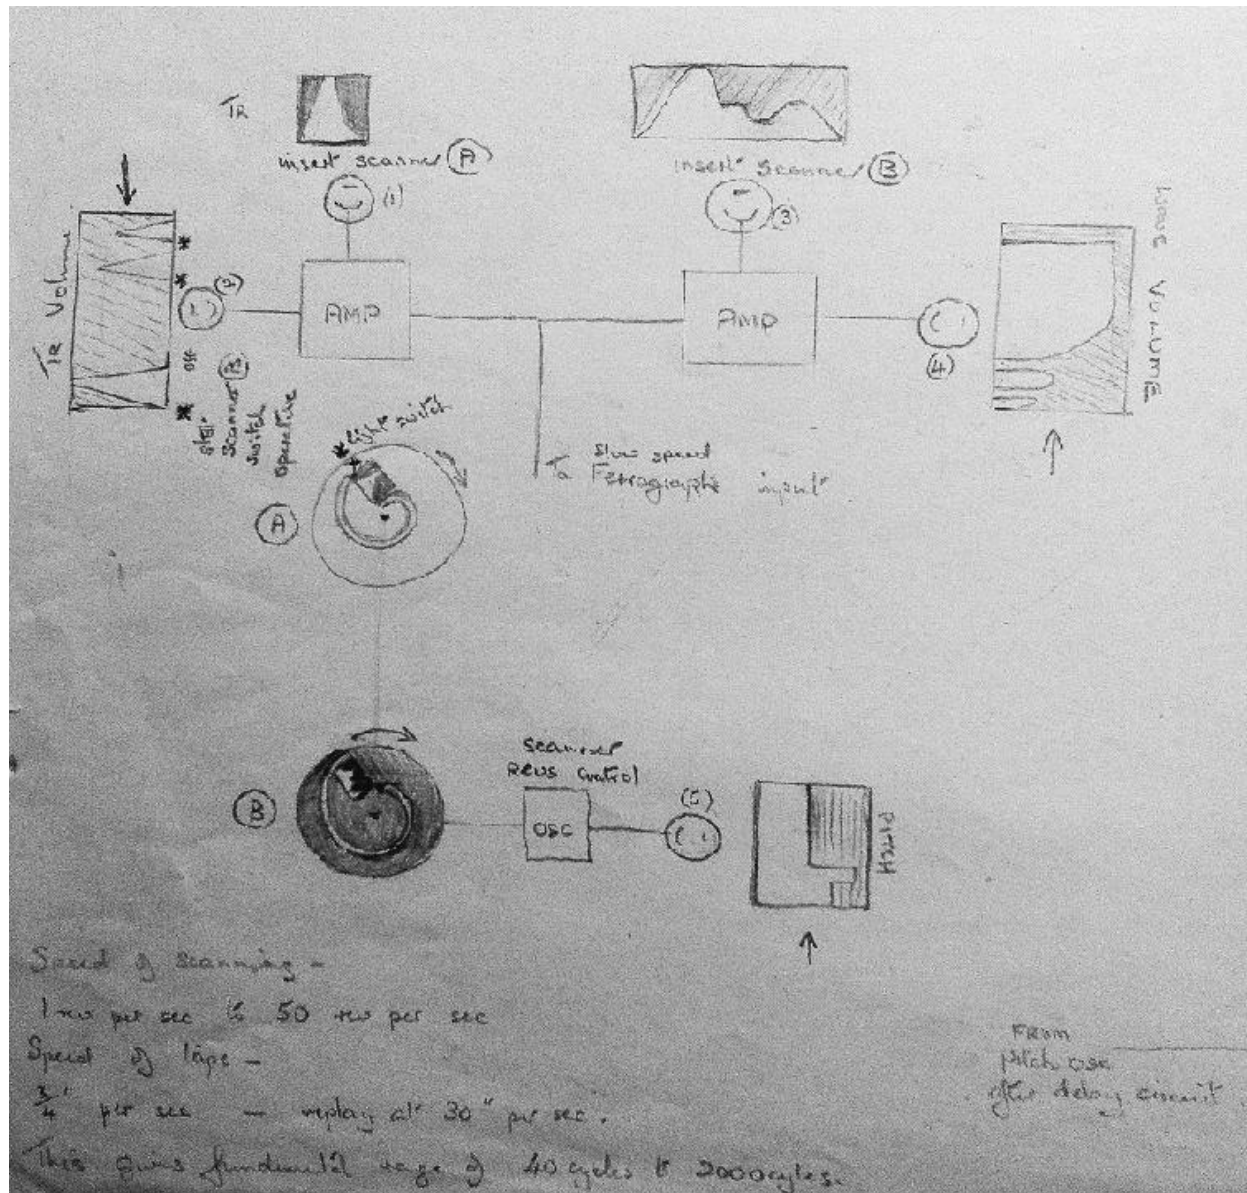 TR
insert scanner (A)
(1)
insert scanner (B)
(3)
TR Volume
(2)
AMP
AMP
(4)
WAVE VOLUME
off
scanner
switch
operative
light switch
(A)
slow speed
To Ferrographic input
(B)
scanner
REVS control
OSC
(5)
PITCH
Speed of scanning -
1 rev per sec to 50 rev per sec
Speed of tape -
3/4" per sec — replay at 30" per sec.
This gives fundmental range of 40 cycles to 2000 cycles.
FROM
pitch osc
after delay circuit.